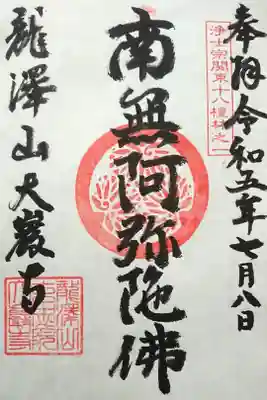 奉拝 令和五年七月八日
浄土宗關東十八檀林之一
南無阿弥陀佛
龍澤山大巖寺
龍澤山
玄忠院
大巖寺